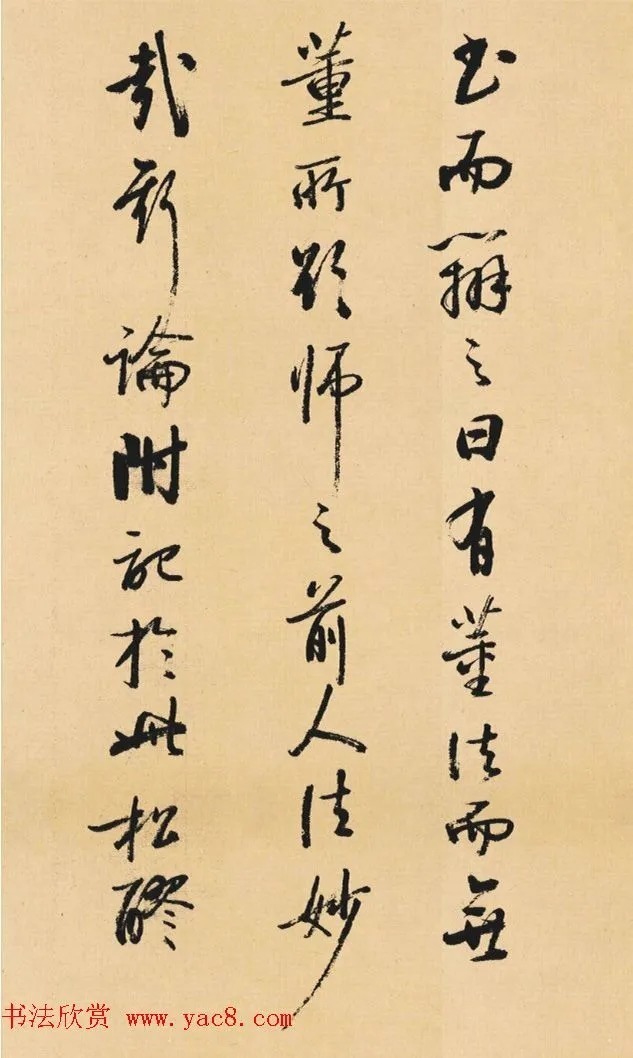 書而辨之曰有董法而無
董所欲師之前人法妙
哉斯論附記於此松醪
书法欣赏 www.yac8.com